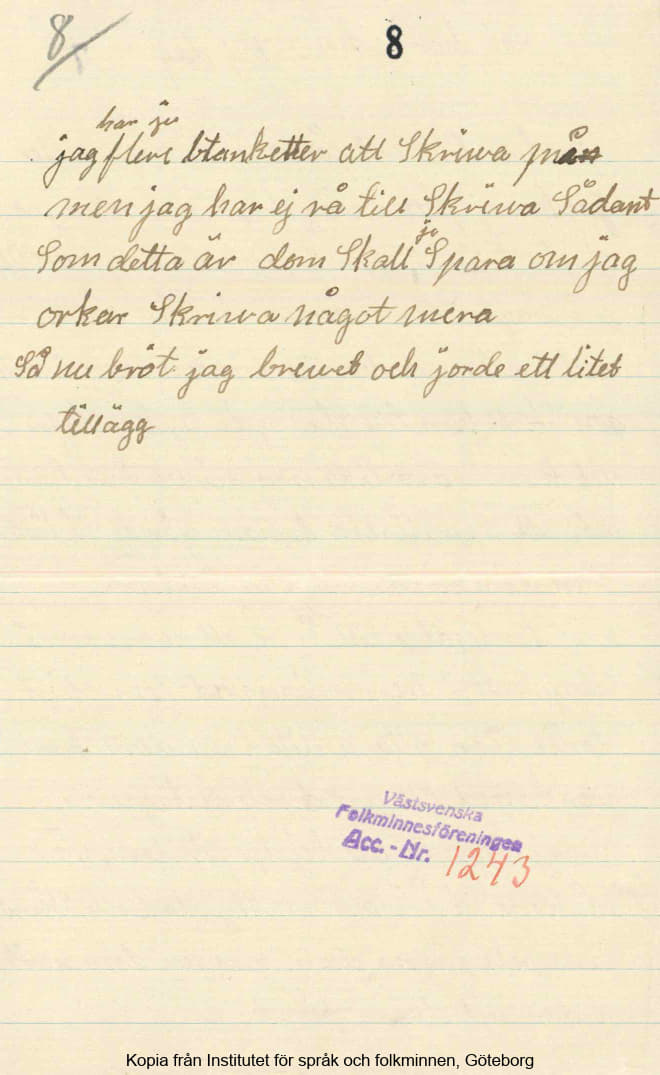 8 8
har ju
jag flere blanketter att Skriwa på
men jag har ej rå till Skriwa Sådant
ju
Som detta är dom Skall Spara om jag
orkar Skriwa något mera
Så nu bröt jag brewet och jorde ett litet
tillägg
Västsvenska
Folkminnesföreningen
Acc. - Nr. 1243
Kopia från Institutet för språk och folkminnen, Göteborg